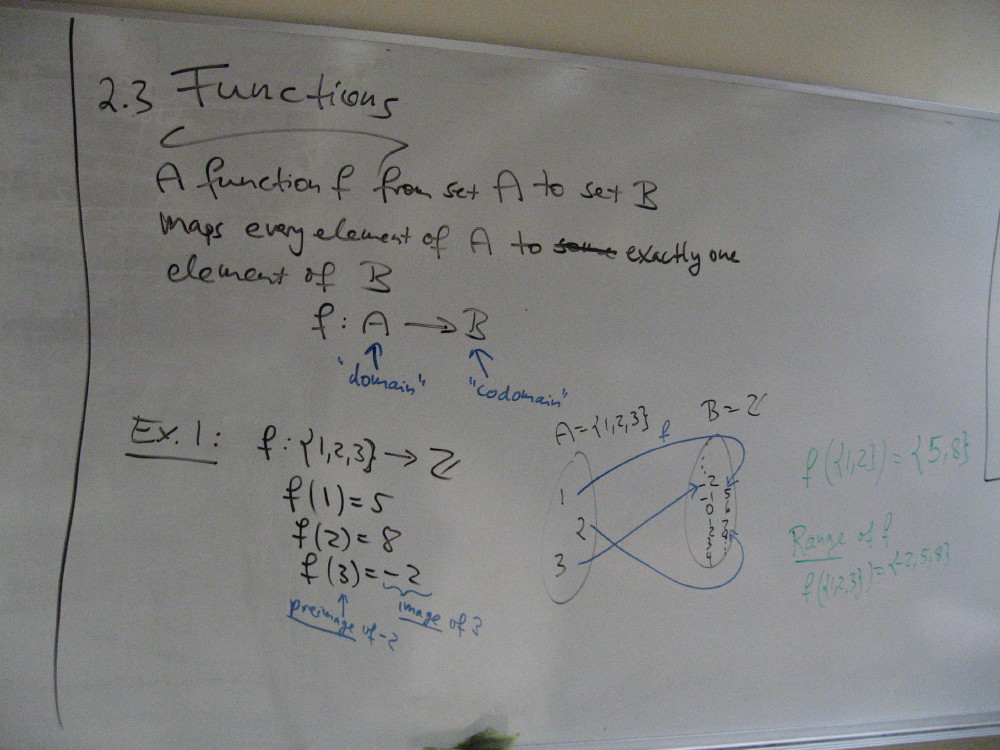 2.3 Functions
A function f from set A to set B
maps every element of A to some exactly one
element of B
f : A → B
"domain" "codomain"
Ex. 1: f : {1,2,3} → ℤ
f(1) = 5
f(2) = 8
f(3) = -2
preimage of -2
image of 3
A = {1,2,3}
B = ℤ
f
1
2
3
-2
-1
0
1
2
3
4
5
6
7
f({1,2}) = {5,8}
Range of f
f({1,2,3}) = {-2,5,8}